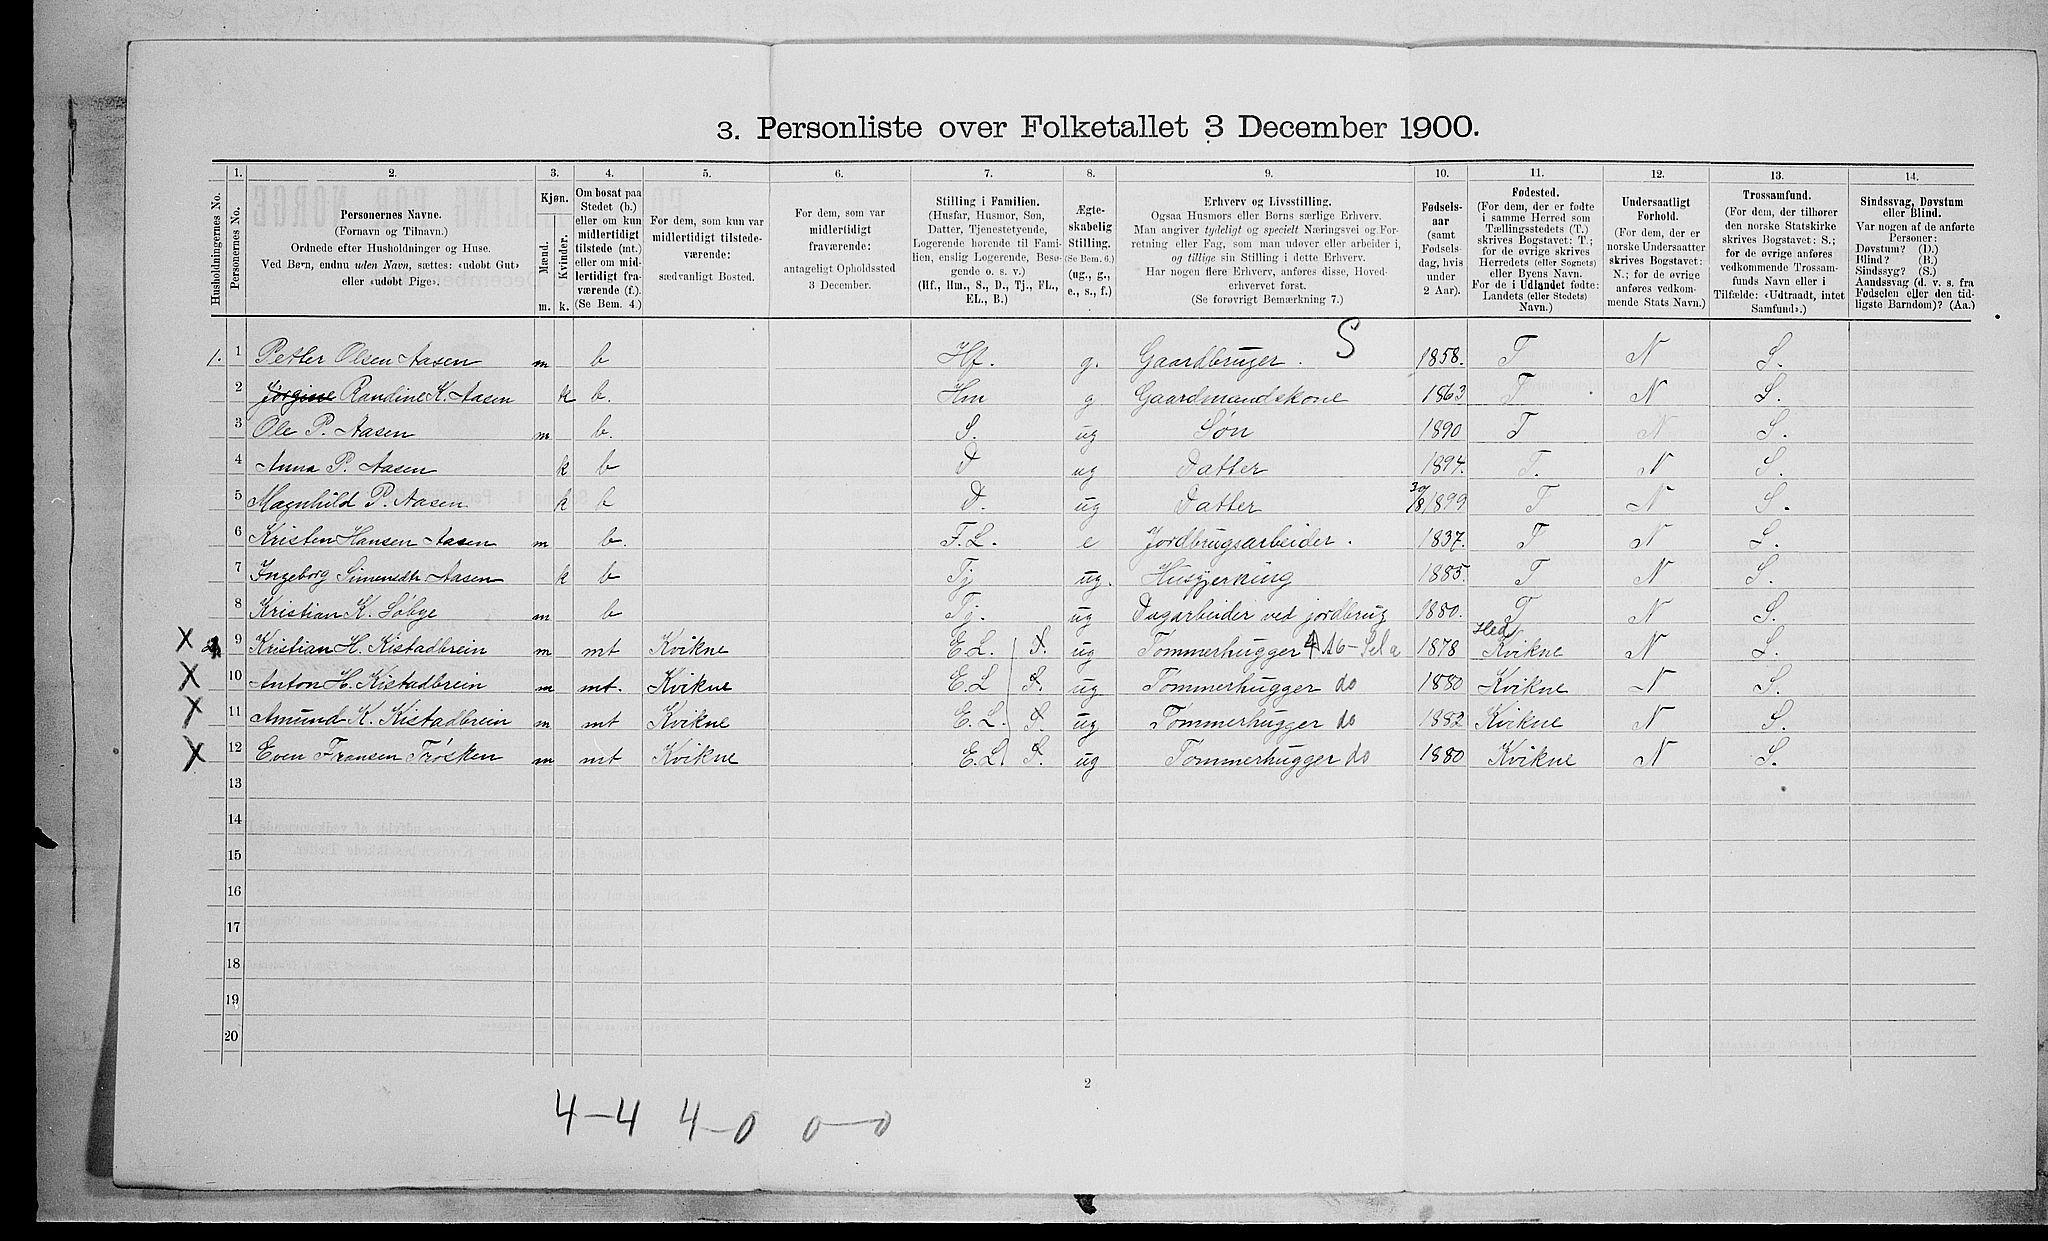 3. Personliste over Folketallet 3 December 1900.
Husholdningernes No.
1. Personernes No.
2. Personernes Navne. (Fornavn og Tilnavn.) Ordnede efter Husholdninger og Huse. Ved Børn, endnu uden Navn, sættes: «udøbt Gut» eller «udøbt Pige».
3. Kjøn. Mænd. Kvinder. m. k.
4. Om bosat paa Stedet (b.) eller om kun midlertidigt tilstede (mt.) eller om midlertidigt fraværende (f.) (Se Bem. 4.)
5. For dem, som kun var midlertidigt tilstedeværende: sædvanligt Bosted.
6. For dem, som var midlertidigt fraværende: antageligt Opholdssted 3 December.
7. Stilling i Familien. (Husfar, Husmor, Søn, Datter, Tjenestetyende, Logerende hørende til Familien, enslig Logerende, Besøgende o. s. v.) (Hf., Hm., S., D., Tj., FL., EL., B.)
8. Ægteskabelig Stilling. (Se Bem. 6.) (ug., g., e., s., f.)
9. Erhverv og Livsstilling. Ogsaa Husmors eller Børns særlige Erhverv. Man angiver tydeligt og specielt Næringsvei og Forretning eller Fag, som man udøver eller arbeider i, og tillige sin Stilling i dette Erhverv. Har nogen flere Erhverv, anføres disse, Hovederhvervet først. (Se forøvrigt Bemærkning 7.)
10. Fødselsaar (samt Fødselsdag, hvis under 2 Aar).
11. Fødested. (For dem, der er fødte i samme Herred som Tællingsstedets (T.) skrives Bogstavet: T.; for de øvrige skrives Herredets (eller Sognets) eller Byens Navn. For de i Udlandet fødte: Landets (eller Stedets) Navn.)
12. Undersaatligt Forhold. (For dem, der er norske Undersaatter skrives Bogstavet: N.; for de øvrige anføres vedkommende Stats Navn.)
13. Trossamfund. (For dem, der tilhører den norske Statskirke skrives Bogstavet: S.; for de øvrige anføres vedkommende Trossamfunds Navn eller i Tilfælde: «Udtraadt, intet Samfund».)
14. Sindssvag, Døvstum eller Blind. Var nogen af de anførte Personer: Døvstum? (D.) Blind? (B.) Sindssyg? (S.) Aandssvag (d. v. s. fra Fødselen eller den tidligste Barndom)? (Aa.)
S
1. 1 Petter Olsen Aasen m b Hf. g. Gaardbruger. 1858. T N S.
2 Jørgine Randine K. Aasen k b. Hm g Gaardmandskone 1863 T N S.
3 Ole P. Aasen m b. S. ug Søn 1890 T N S.
4 Anna P. Aasen k b D ug Datter 1894. T. N S.
5 Magnhild P. Aasen k b D. ug Datter 30/8 1899 T N S.
6 Kristen Hansen Aasen m b. F.L. e Jordbrugsarbeider. 1837. T N S.
7 Ingeborg Simensdtr Aasen k b Tj ug. Husgjerning 1885. T N S.
8 Kristian K. Søbye m b Tj. ug Dagarbeider ved jordbrug 1880. T N S.
X 9 Kristian H. Kistadbrein m mt Kvikne E.L. S. ug Tømmerhugger 1878 Hed Kvikne N S.
X 10 Anton H. Kistadbrein m mt. Kvikne E.L S. ug Tømmerhugger do 1880 Kvikne N S.
X 11 Amund K. Kistadbrein m mt Kvikne E.L. S ug Tømmerhugger do 1882 Kvikne N S.
X 12 Even Fransen Frøsken m mt Kvikne E.L. S. ug Tømmerhugger do 1880 Kvikne N S.
13
14
15
16
17
18
19
20
2
4-4 4-0 0-0